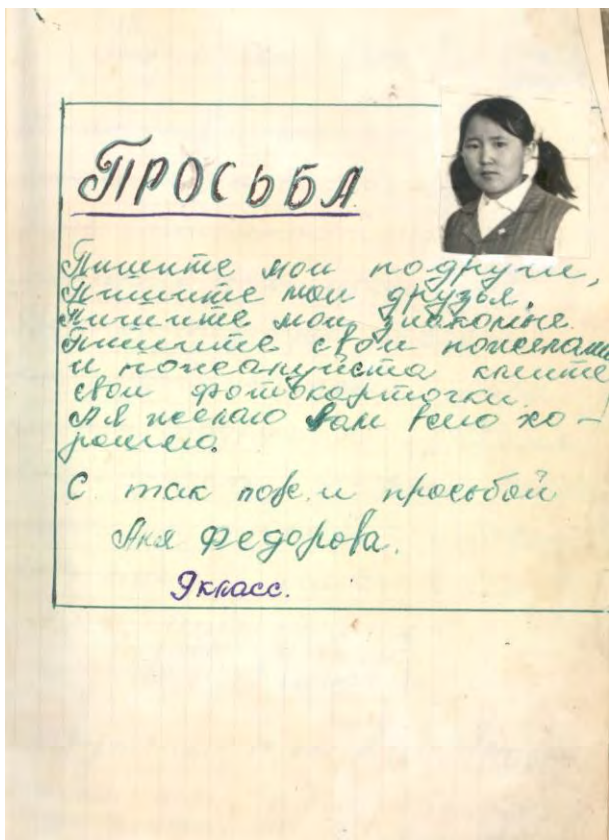 ПРОСЬБА
Пишите мои подруги,
Пишите мои друзья,
Пишите мои знакомые.
Пишите свои пожелани
и пожалуйста клеите
свои фотокарточки.
А я желаю вам всего хо-
рошего.
С так
и просьбой
Аня Федорова.
9 класс.